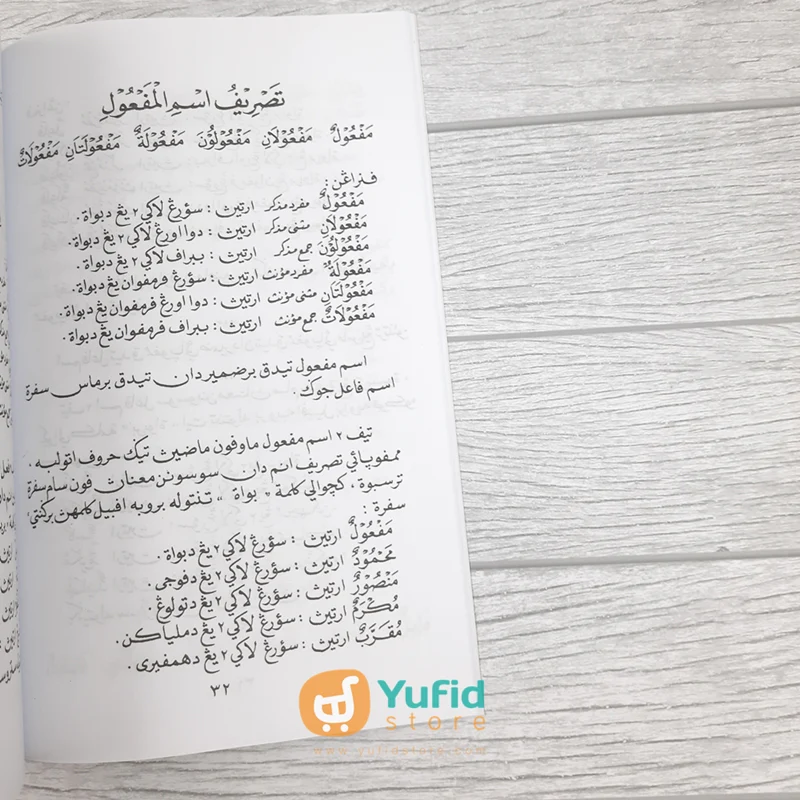 تَصْرِيْفُ اسْمِ الْمَفْعُوْلِ
مَفْعُوْلٌ مَفْعُوْلَانِ مَفْعُوْلُوْنَ مَفْعُوْلَةٌ مَفْعُوْلَتَانِ مَفْعُوْلَاتٌ
فنراڠن :
مَفْعُوْلٌ مفرد مذكر ارتيڽ : سؤرڠ لاكي٢ يڠ دبواة .
مَفْعُوْلَانِ مثنى مذكر ارتيڽ : دوا اورڠ لاكي٢ يڠ دبواة .
مَفْعُوْلُوْنَ جمع مذكر ارتيڽ : ببراف لاكي٢ يڠ دبواة .
مَفْعُوْلَةٌ مفرد مؤنث ارتيڽ : سؤرڠ فرمفوان يڠ دبواة .
مَفْعُوْلَتَانِ مثنى مؤنث ارتيڽ : دوا اورڠ فرمفوان يڠ دبواة .
مَفْعُوْلَاتٌ جمع مؤنث ارتيڽ : ببراف فرمفوان يڠ دبواة .
اسم مفعول تيدق برضمير دان تيدق برماس سفرة
اسم فاعل جوك .
تيف٢ اسم مفعول ماوفون ماضيڽ تيك حروف اتوليه .
ممفوڽائي تصريف انم دان سوسونن معناڽ فون سام سفرة
ترسبوة ، كچوالي كلمة " بواة " تنتوله بروبه افبيل كلمهڽ بركنتي
سفرة :
مَفْعُوْلٌ ارتيڽ : سؤرڠ لاكي٢ يڠ دبواة .
مَحْمُوْدٌ ارتيڽ : سؤرڠ لاكي٢ يڠ دفوجى .
مَنْصُوْرٌ ارتيڽ : سؤرڠ لاكي٢ يڠ دتولوڠ .
مُكْرَمٌ ارتيڽ : سؤرڠ لاكي٢ يڠ دملياكن .
مُقَرَّبٌ ارتيڽ : سؤرڠ لاكي٢ يڠ دهمفيرى .
٣٢
Yufid
store